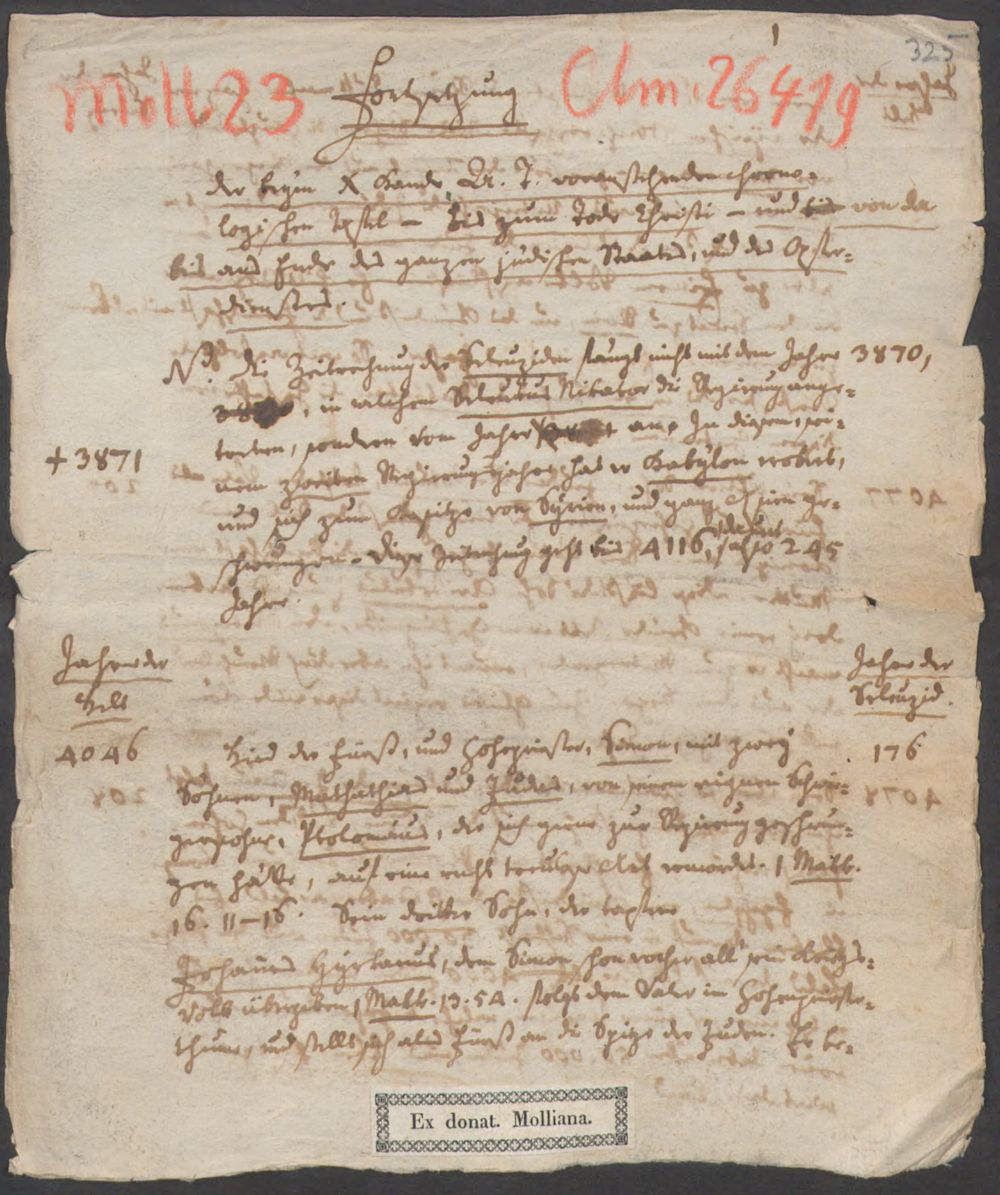 1
325
Moll 23 Fortsetzung Clm. 26419
der beym X Bande, Br. T. voranstehenden chrono-
logischen Tafel – bis zum Tode Christi – und von da
bis ans Ende des ganzen jüdischen Staates, und des Opfer-
dienstes.
NB. Die Zeitrechnung der Seleuziden fängt nicht mit dem Jahre 3870,
in welchem Seleukus Nikator die Regierung ange-
treten, sondern vom Jahre + an. In diesem, sei-
+ 3871
nem zweiten Regierungsjahre hat er Babylon erobert,
und sich zum Besitze von Syrien, und ganz Asien ge-
schwungen. Diese Zeitrechnung geht bis 4116, 245
Jahre.
Jahre der
Welt
Jahre der
Seleuzid.
4046 Wird der Fürst, und Hohepriester, Simon, mit zwey 176
Söhnen, Mathathias und Judas, von seinem eignen Schwie-
gersohne, Ptolomäus, der sich gerne zur Regierung geschwun-
gen hätte, auf eine recht Art ermordet. 1 Makk.
16. 11–16. Sein dritter Sohn, der tapfere
Johannes Hyrkanus, dem Simon schon vorher all sein Kriegs-
volk übergeben 1 Makk. 13. 54. folgt dem Vater im Hohenpriester-
thume, und stellt sich als Fürst an die Spitze der Juden. Er be-
Ex donat. Molliana.